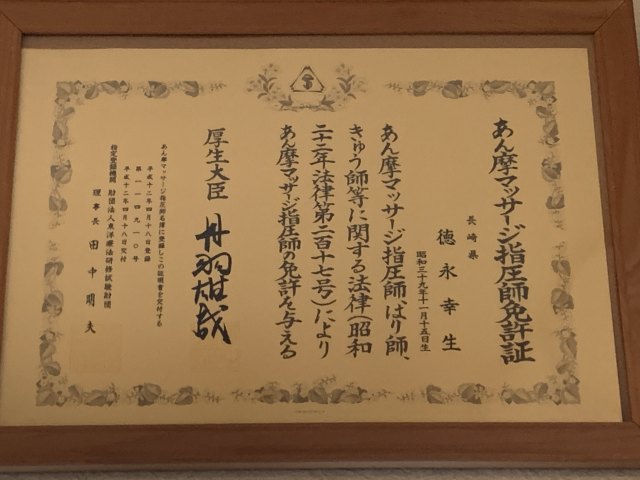 あん摩マッサージ指圧師免許証
長崎県
徳永幸生
昭和三十九年十一月十五日生
あん摩マッサージ指圧師、はり師、
きゅう師等に関する法律(昭和
二十二年法律第二百十七号)により
あん摩マッサージ指圧師の免許を与える
厚生大臣 丹羽雄哉
あん摩マッサージ指圧師名簿に登録しこの証明書を交付する
平成十二年四月十八日登録
第一一四九一〇号
平成十二年四月十八日交付
指定登録機関 財団法人東洋療法研修試験財団
理事長 田中明夫